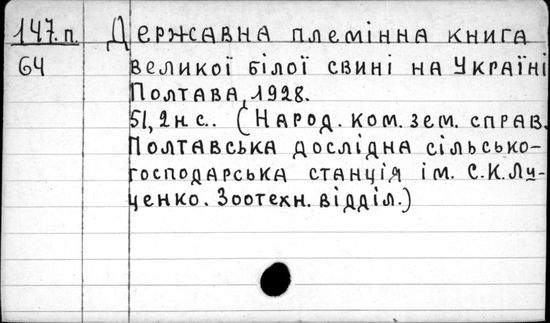 147.п. Державна племінна книга
64 великої білої свині на Україні
Полтава, 1928.
51, 2 н с.. (Народ. ком. зем. справ.
Полтавська дослідна сільсько-
господарська станція ім. С.К.Лу-
ценко. Зоотехн. відділ.)